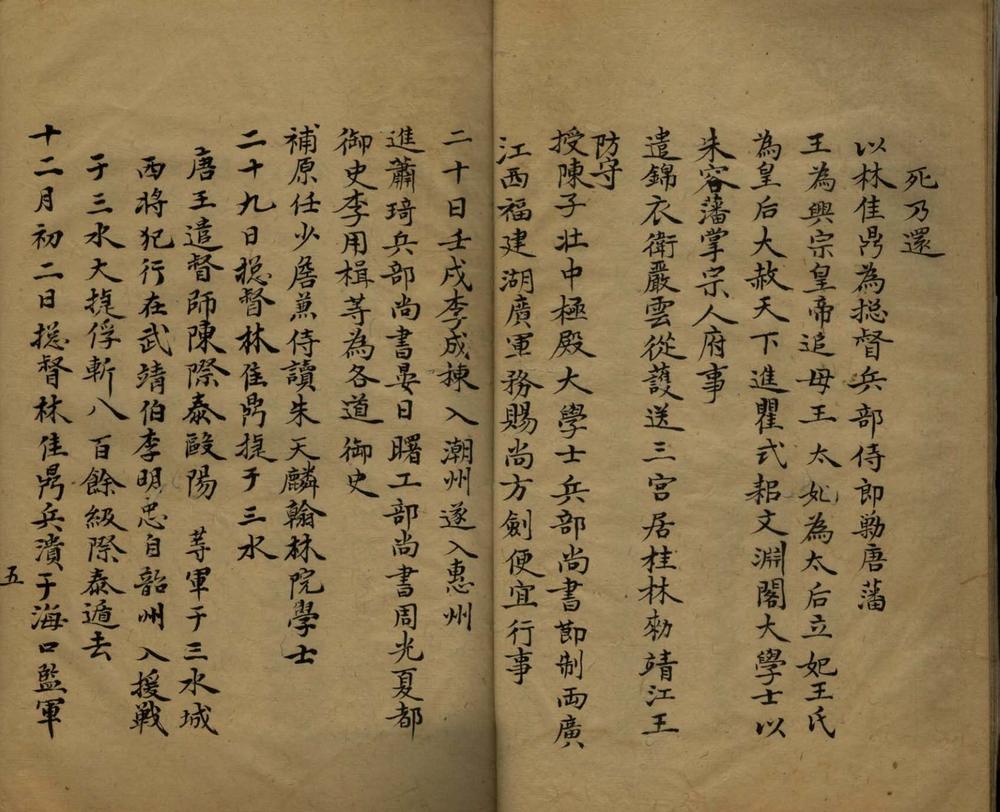 死乃還
以林佳鼎為総督兵部侍郎勦唐藩
王為興宗皇帝追母王太妃為太后立妃王氏
為皇后大赦天下進瞿式耜文淵閣大學士以
朱容藩掌宗人府事
遣錦衣衛嚴雲從護送三宮居桂林勑靖江王
防守
授陳子壮中極殿大學士兵部尚書節制両廣
江西福建湖廣軍務賜尚方劍便宜行事
二十日壬戌李成棟入潮州遂入惠州
進蕭琦兵部尚書晏日曙工部尚書周光夏都
御史李用楫等為各道御史
補原任少詹兼侍讀朱天麟翰林院學士
二十九日総督林佳鼎捷于三水
唐王遣督師陳際泰毆陽 等軍于三水城
西将犯行在武靖伯李明忠自韶州入援戦
于三水大捷俘斬八百餘級際泰遁去
十二月初二日総督林佳鼎兵潰于海口監軍
五